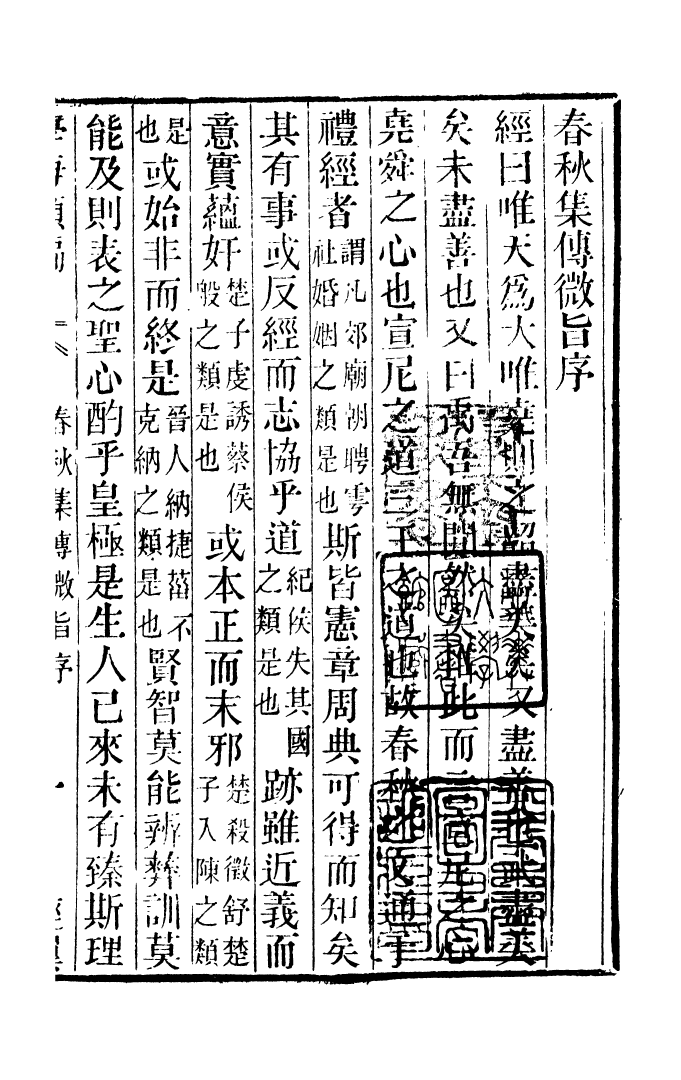 春秋集傳微旨序
經曰唯天爲大唯堯則之韶盡美矣又盡善也武盡美
矣未盡善也又曰禹吾無間然矣推此而言宣尼之心
堯舜之心也宣尼之道三王之道也故春秋之文通乎
禮經者謂凡郊廟朝聘雩社婚姻之類是也斯皆憲章周典可得而知矣
其有事或反經而志協乎道紀侯失其國之類是也跡雖近義而
意實蘊奸楚子虔誘蔡侯般之類是也或本正而末邪楚殺徵舒楚子入陳之類
是也或始非而終是晉人納捷菑不克納之類是也賢智莫能辨彝訓莫
能及則表之聖心酌乎皇極是生人已來未有臻斯理
學海類編
春秋集傳微旨序
一
經翼